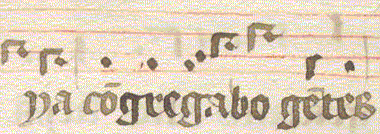 ya cōgregabo gētes